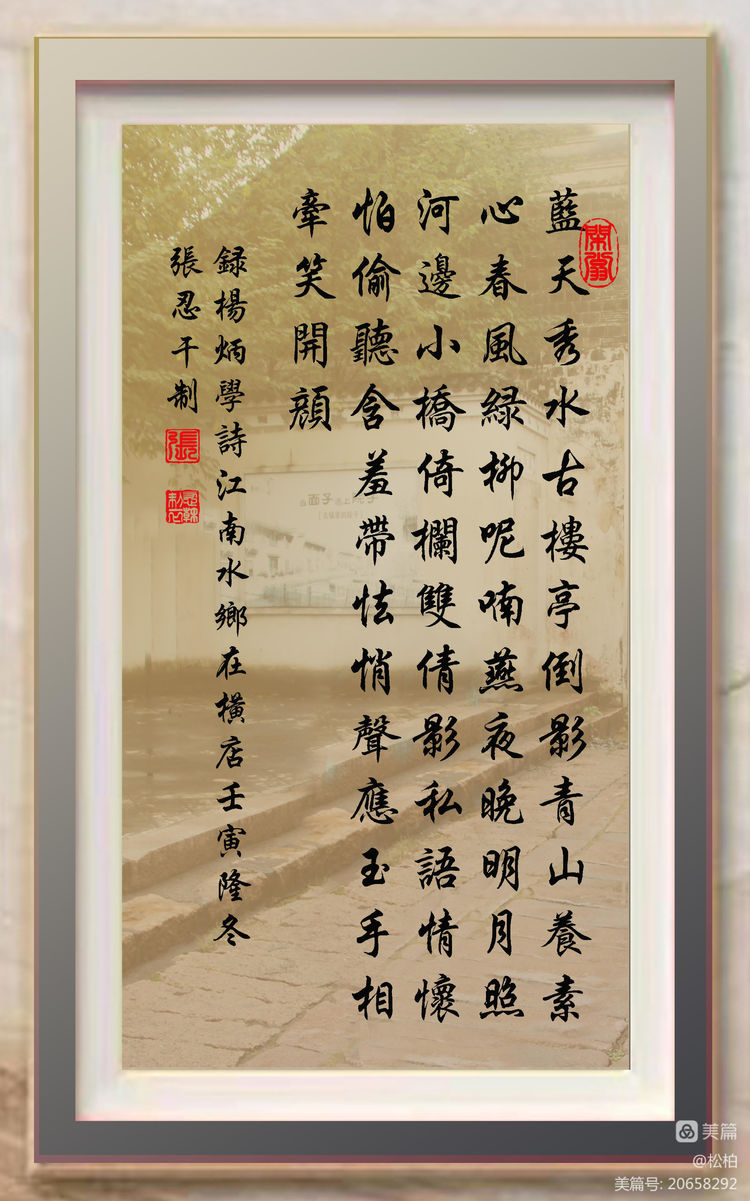 藍天秀水古樓亭倒影青山養素
心春風綠柳呢喃燕夜晚明月照
河邊小橋倚欄雙倩影私語情懷
怕偷聽含羞帶怯悄聲應玉手相
牽笑開顏
録楊炳學詩江南水鄉在橫店壬寅隆冬
張忍干制
張
面子
美篇
@松柏
美篇号: 20658292